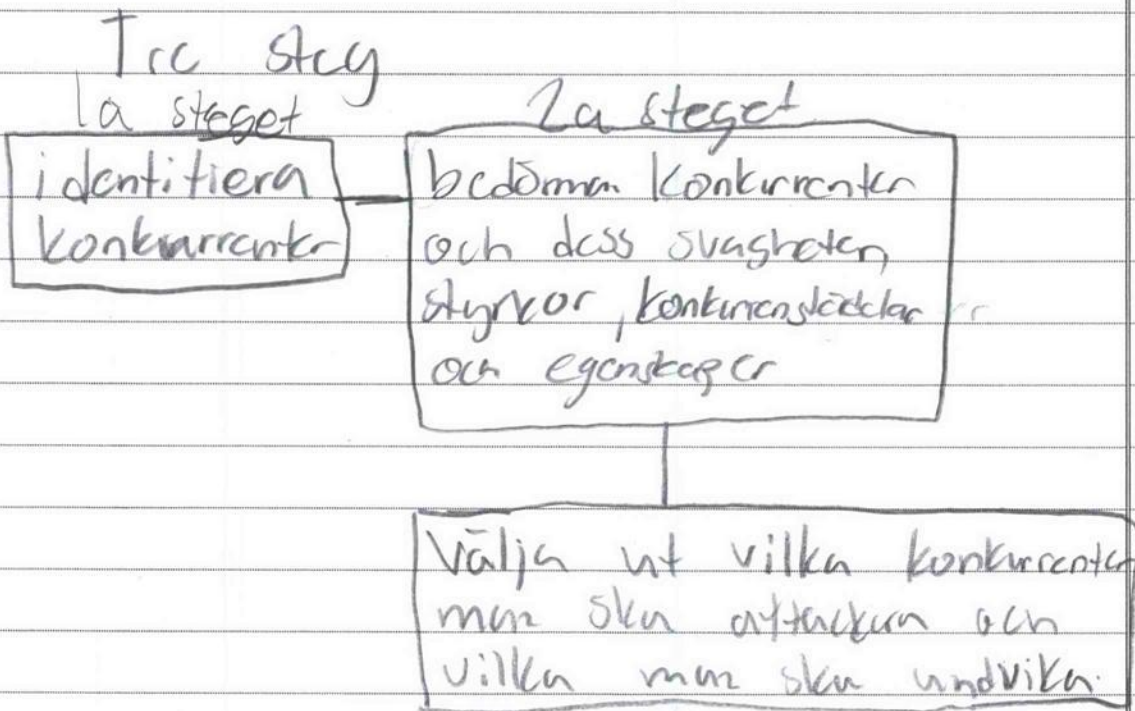 Tre steg
1a steget
identifiera
konkurrenter
2a steget
bedöman konkurrenter
och dess svagheter,
styrkor, konkurrensfördelar
och egenskaper
Välja ut vilka konkurrenter
man ska attackera och
vilka man ska undvika.